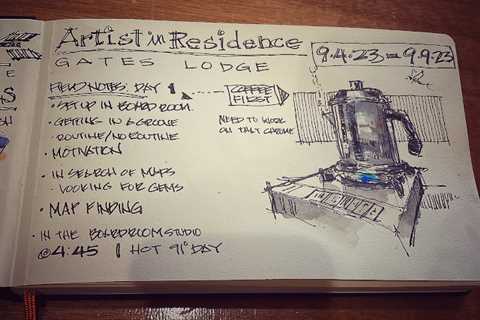 Artist in Residence
9.4.23 – 9.9.23
GATES LODGE
FIELD NOTES: DAY 1
COFFEE FIRST
• SET UP IN BOARD ROOM
• GETTING IN A GROOVE
- ROUTINE/NO ROUTINE
• MOTIVATION
NEED TO WORK
ON THAT CHROME
• IN SEARCH OF MAPS
- LOOKING FOR GEMS
• MAP FINDING
• IN THE BOARDROOM STUDIO
@ 4:45 | HOT 91° DAY